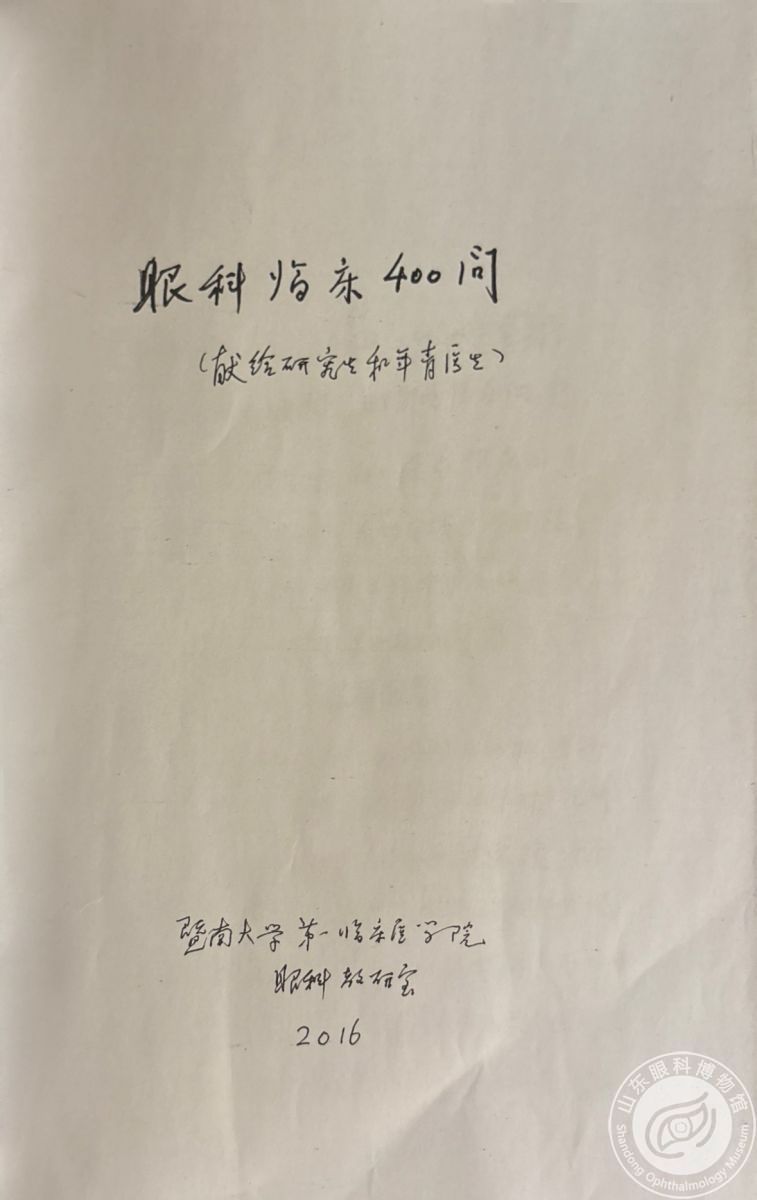 眼科临床400问
(献给研究生和年青医生)
暨南大学第一临床医学院
眼科教研室
2016
山东眼科博物馆
Shandong Ophthalmology Museum